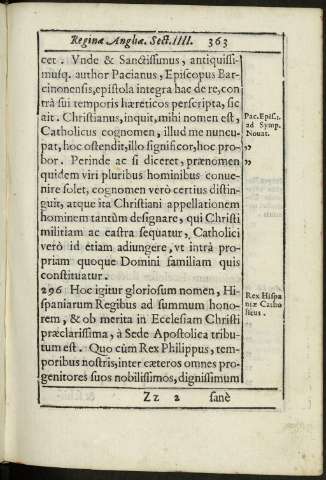 Reginæ Angliæ. Sect. IIII. 363
cet. Vnde & Sanctissimus, antiquissi-
musq. author Pacianus, Episcopus Bar-
cinonensis, epistola integra hac de re, con
trà sui temporis hæreticos perscripta, sic
ait. Christianus, inquit, mihi nomen est,
Catholicus cognomen, illud me nuncu-
pat, hoc ostendit, illo significor, hoc pro-
bor. Perinde ac si diceret, prænomen
quidem viri pluribus hominibus conue-
nire solet, cognomen verò certius distin-
guit, atque ita Christiani appellationem
hominem tantùm designare, qui Christi
militiam ac castra sequatur, Catholici
verò id etiam adiungere, vt intrà pro-
priam quoque Domini familiam quis
constituatur.
296 Hoc igitur gloriosum nomen, Hi-
spaniarum Regibus ad summum hono-
rem, & ob merita in Ecclesiam Christi
præclarissima, à Sede Apostolica tribu-
tum est. Quo cùm Rex Philippus, tem-
poribus nostris, inter cæteros omnes pro-
genitores suos nobilissimos, dignissimum
Zz 2 sanè
Pac. Epist. 1.
ad Symp.
Nouat.
”
”
Rex Hispa
niæ Catho
licus.